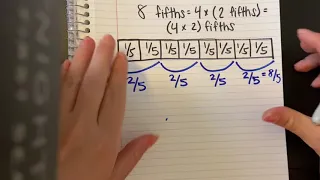 8 fifths = 4 × (2 fifths) =
(4 × 2) fifths
1/5 1/5 1/5 1/5 1/5 1/5 1/5 1/5
2/5 2/5 2/5 2/5 = 8/5